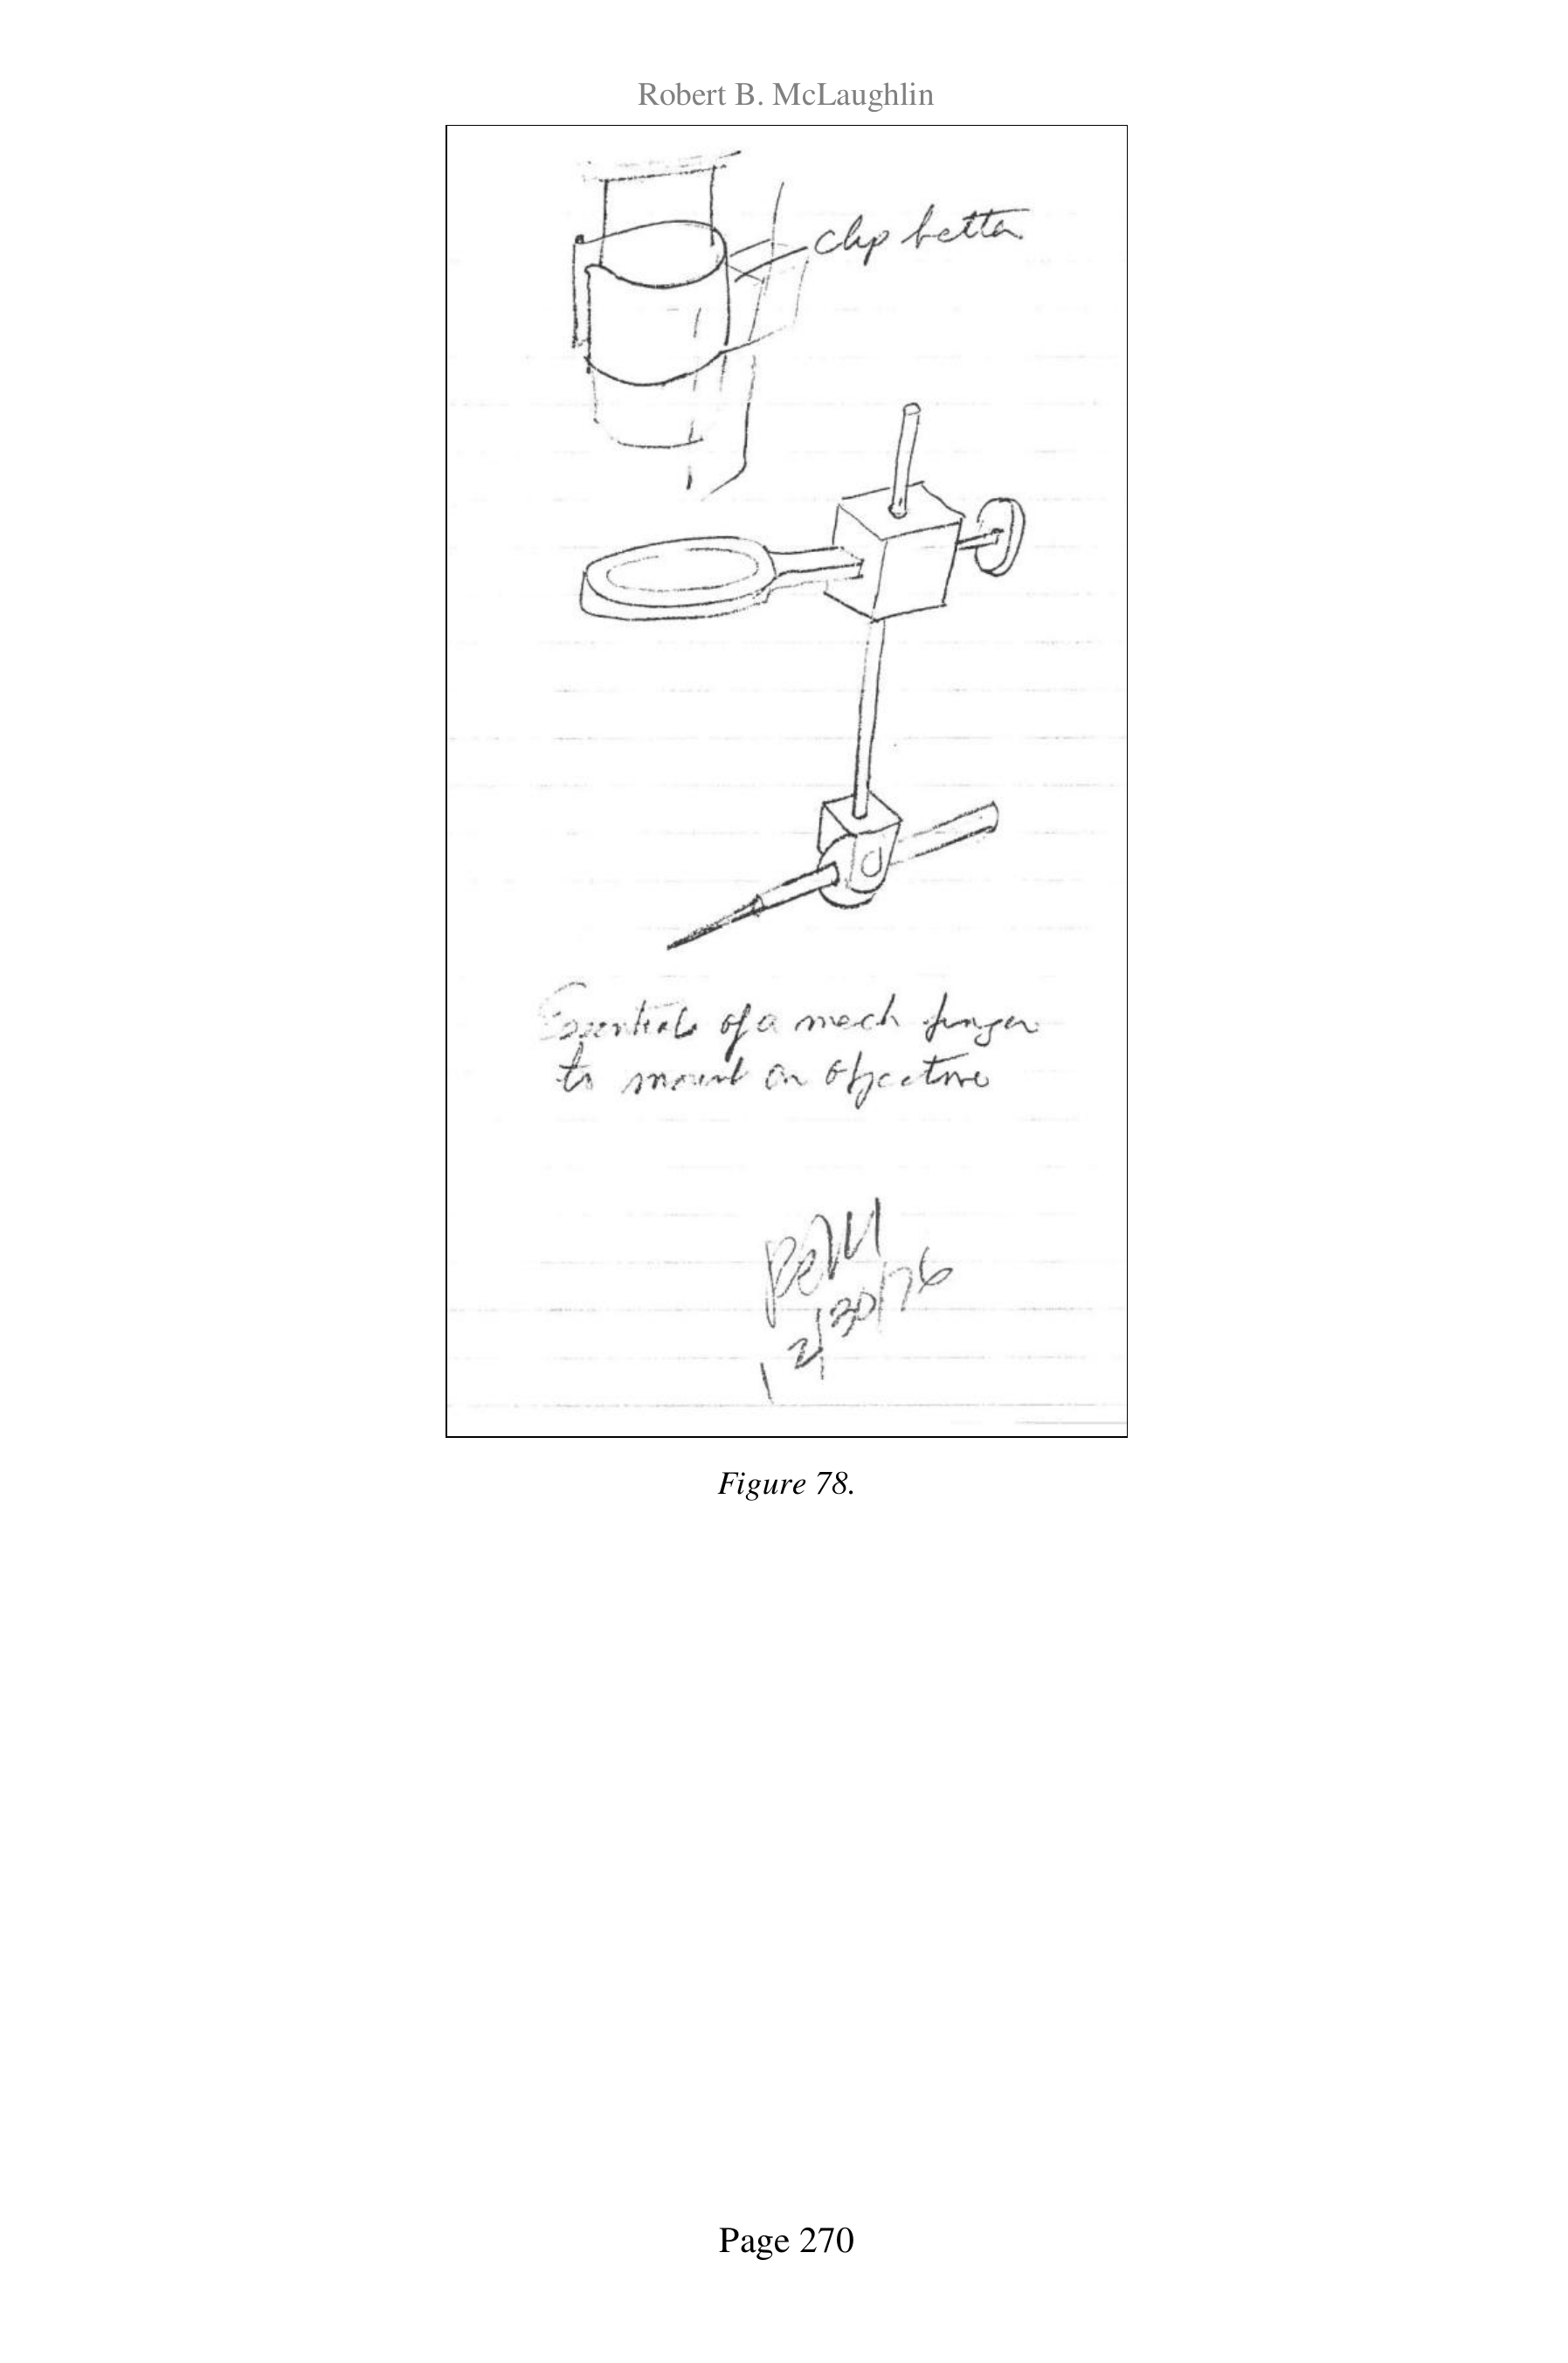 Robert B. McLaughlin
clip better
Essentials of a mech finger
to mount on objective
12/30/76
Figure 78.
Page 270